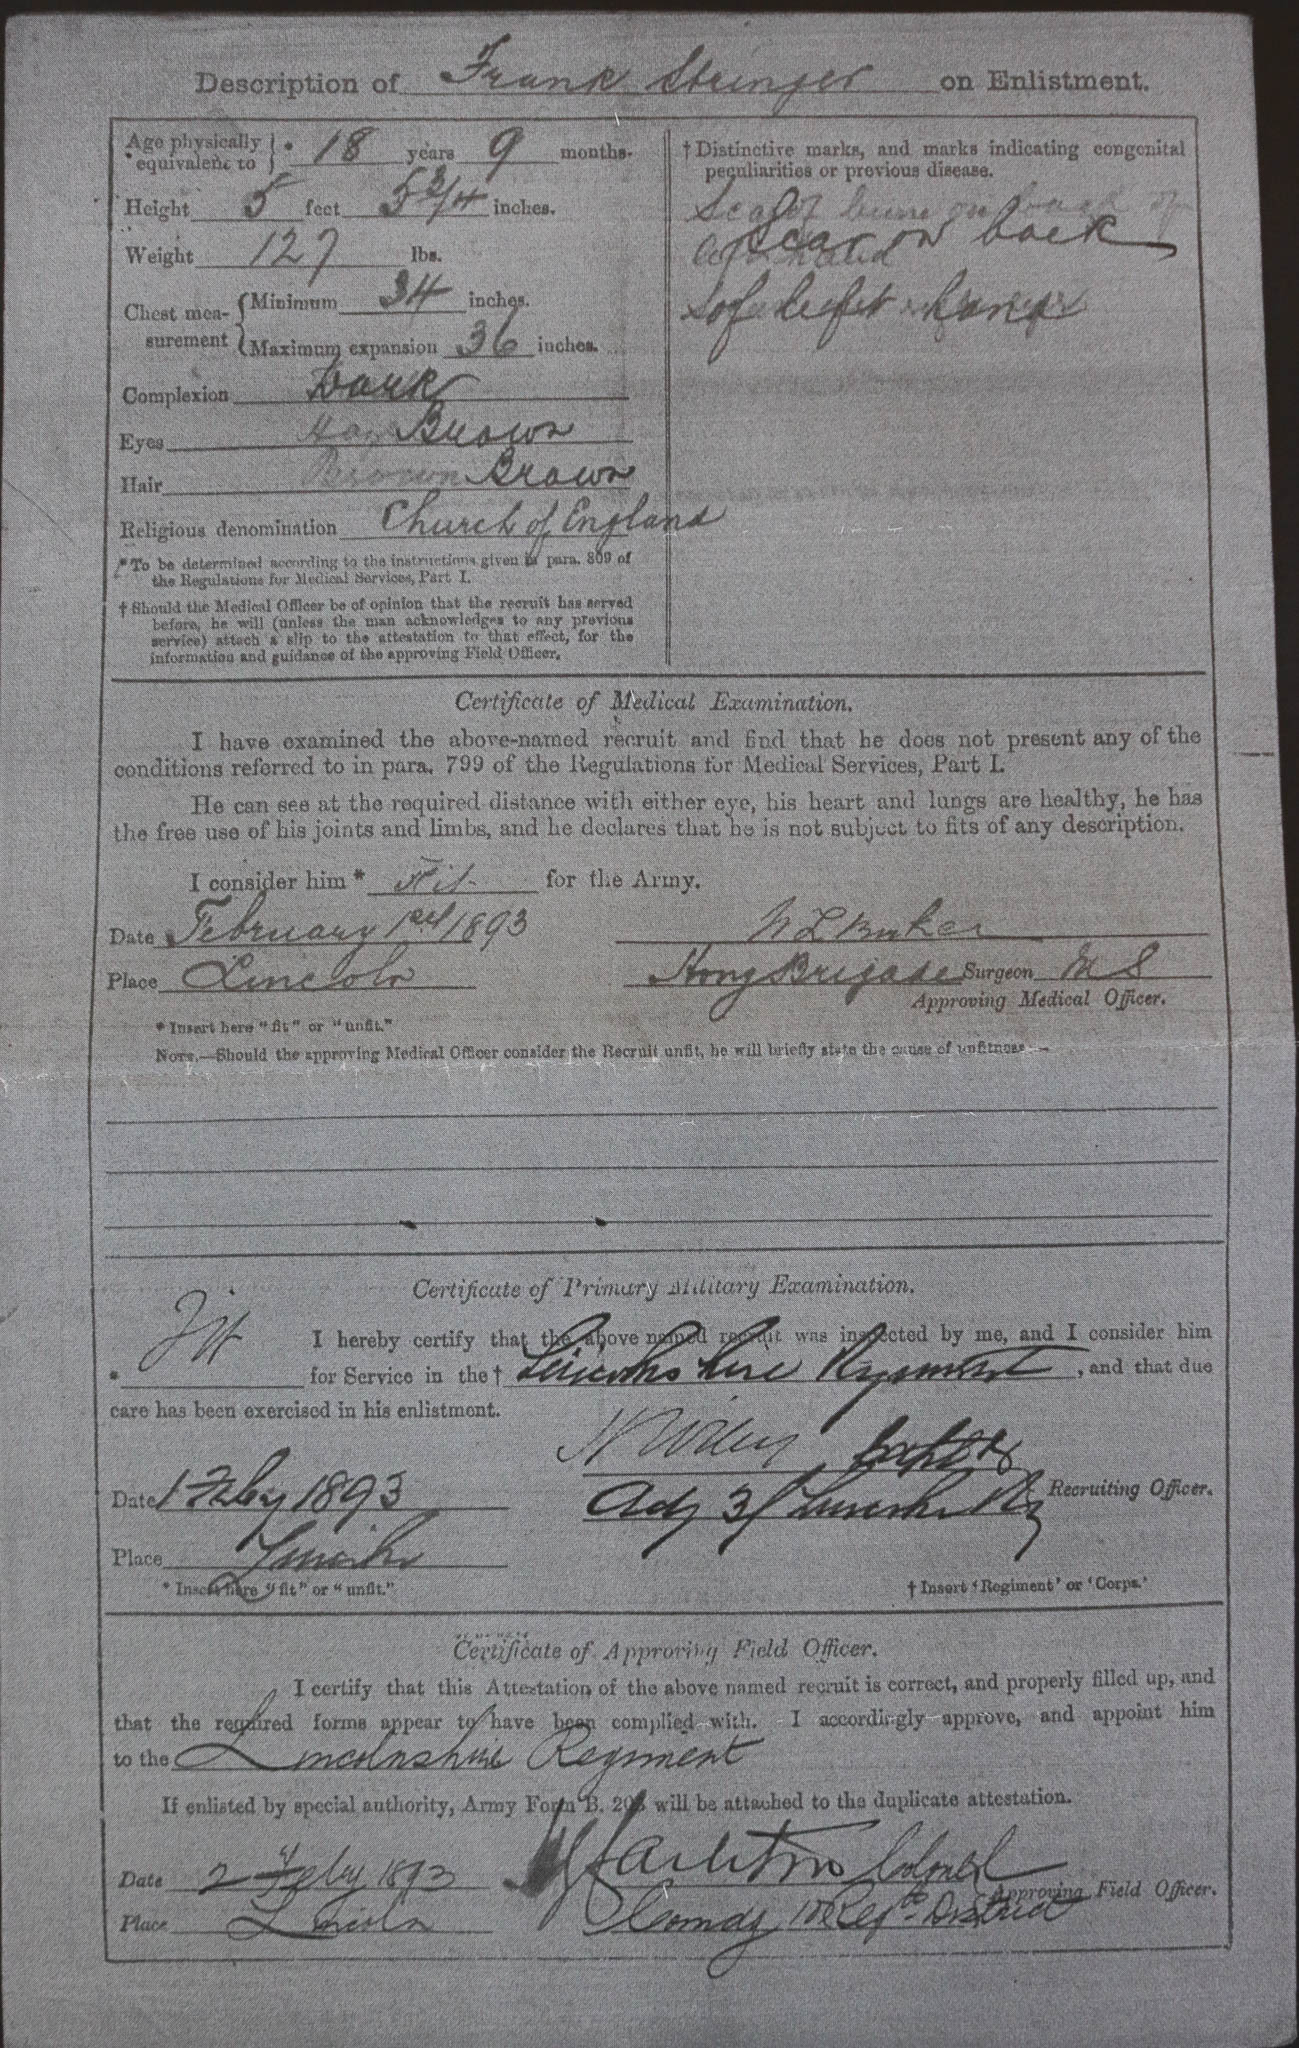 Description of Frank Stringer on Enlistment.
Age physically equivalent to } * 18 years 9 months.
Height 5 feet 5 3/4 inches.
Weight 127 lbs.
Chest measurement { Minimum 34 inches.
Maximum expansion 36 inches.
Complexion Dark
Eyes Brown
Hair Brown Brown
Religious denomination Church of England
* To be determined according to the instructions given in para. 809 of
the Regulations for Medical Services, Part I.
† Should the Medical Officer be of opinion that the recruit has served
before, he will (unless the man acknowledges to any previous
service) attach a slip to the attestation to that effect, for the
information and guidance of the approving Field Officer.
† Distinctive marks, and marks indicating congenital
peculiarities or previous disease.
Scar on back
of left hand
Certificate of Medical Examination.
I have examined the above-named recruit and find that he does not present any of the
conditions referred to in para. 799 of the Regulations for Medical Services, Part I.
He can see at the required distance with either eye, his heart and lungs are healthy, he has
the free use of his joints and limbs, and he declares that he is not subject to fits of any description.
I consider him * Fit for the Army.
Date February 1st 1893
Place Lincoln
Brigade Surgeon M S
Approving Medical Officer.
* Insert here "fit" or "unfit."
NOTE.—Should the approving Medical Officer consider the Recruit unfit, he will briefly state the cause of unfitness—
Certificate of Primary Military Examination.
I hereby certify that the above named recruit was inspected by me, and I consider him
* Fit for Service in the † Lincolnshire Regiment, and that due
care has been exercised in his enlistment.
Date 1 Feby 1893
Adj 3/ Lincoln Rg Recruiting Officer.
Place Lincoln
* Insert here "fit" or "unfit."
† Insert 'Regiment' or 'Corps.'
Certificate of Approving Field Officer.
I certify that this Attestation of the above named recruit is correct, and properly filled up, and
that the required forms appear to have been complied with. I accordingly approve, and appoint him
to the Lincolnshire Regiment
If enlisted by special authority, Army Form B. 203 will be attached to the duplicate attestation.
Date 2 Feby 1893
Colonel
Approving Field Officer.
Place Lincoln
Comdg 10 Regtl District